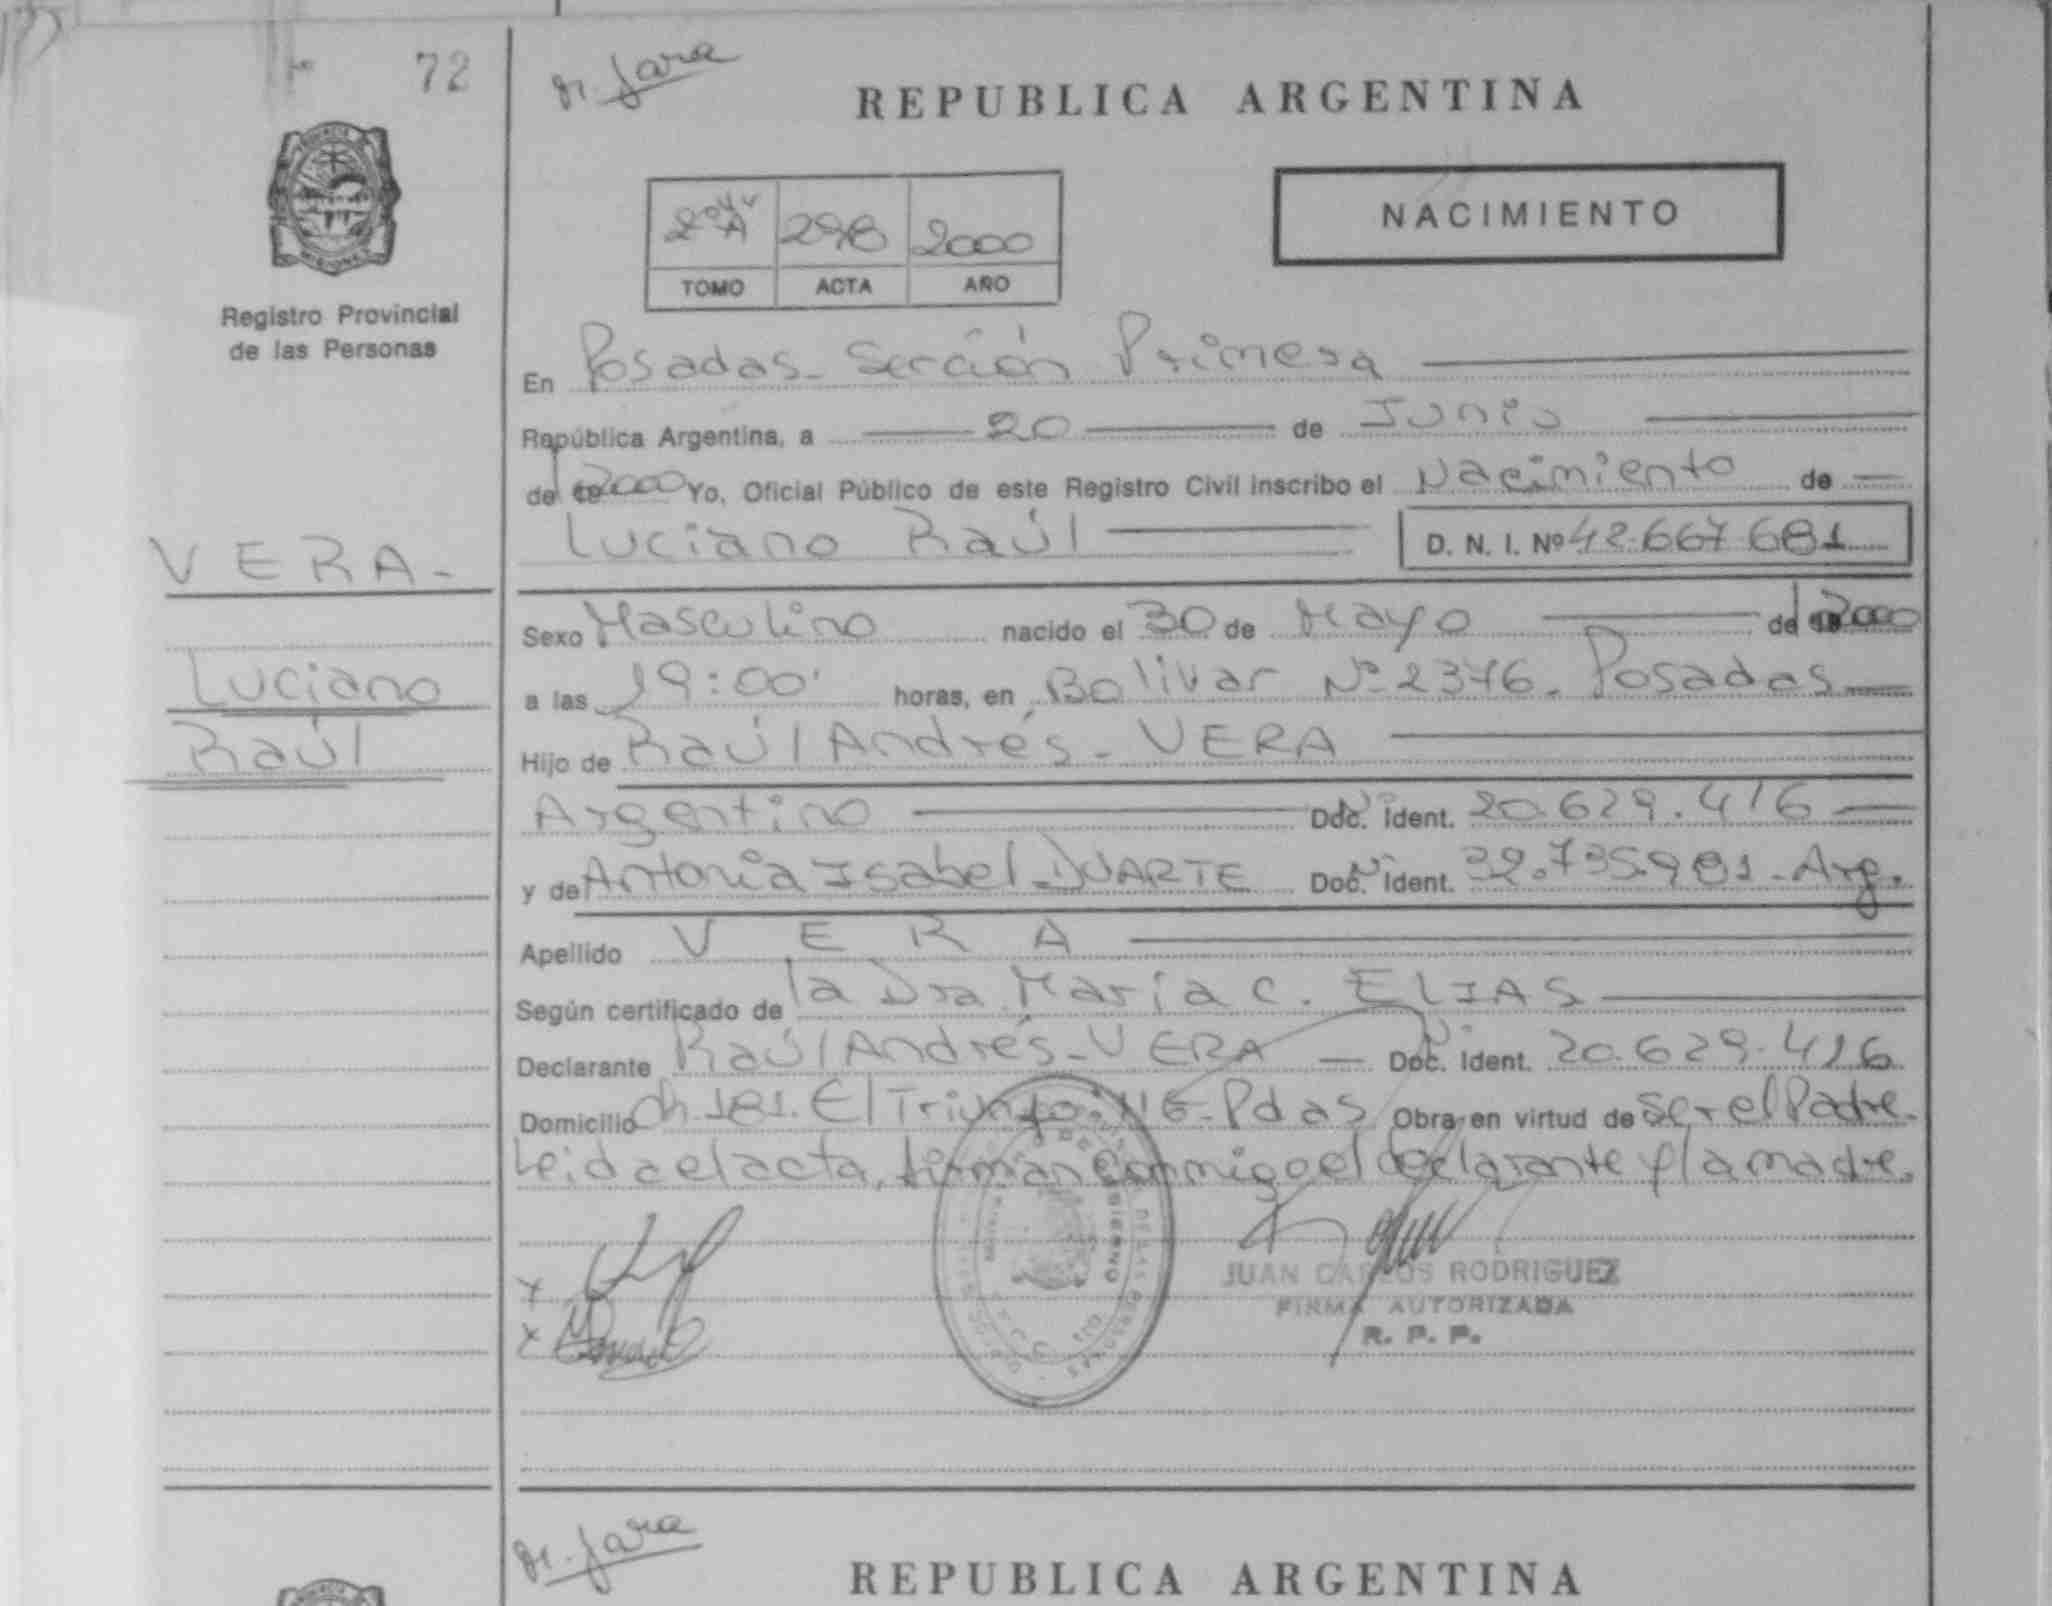 72
Dr. Jara
REPUBLICA ARGENTINA
2º "A" 298 2000
TOMO ACTA AÑO
NACIMIENTO
Registro Provincial
de las Personas
En Posadas - Sección Primera
República Argentina, a 20 de Junio
de 2000 Yo, Oficial Público de este Registro Civil inscribo el Nacimiento de
Luciano Raúl D. N. I. Nº 42.667.681
VERA-
Luciano
Raúl
Sexo Masculino nacido el 30 de Mayo de 2000
a las 19:00' horas, en Bolivar Nº 2376. Posadas
Hijo de Raúl Andrés - VERA
Argentino Doc. Ident. 20.629.416
y de Antonia Isabel - DUARTE Doc. Ident. 32.735.981 - Arg.
Apellido VERA
Según certificado de la Dra. María C. ELIAS
Declarante Raúl Andrés - VERA Doc. Ident. 20.629.416
Domicilio Ch. 181. El Triunfo 116 - Pdas Obra en virtud de ser el Padre.
Leida el acta, firman conmigo el declarante y la madre.
x
x
JUAN CARLOS RODRIGUEZ
FIRMA AUTORIZADA
R. P. P.
Dr. Jara
REPUBLICA ARGENTINA